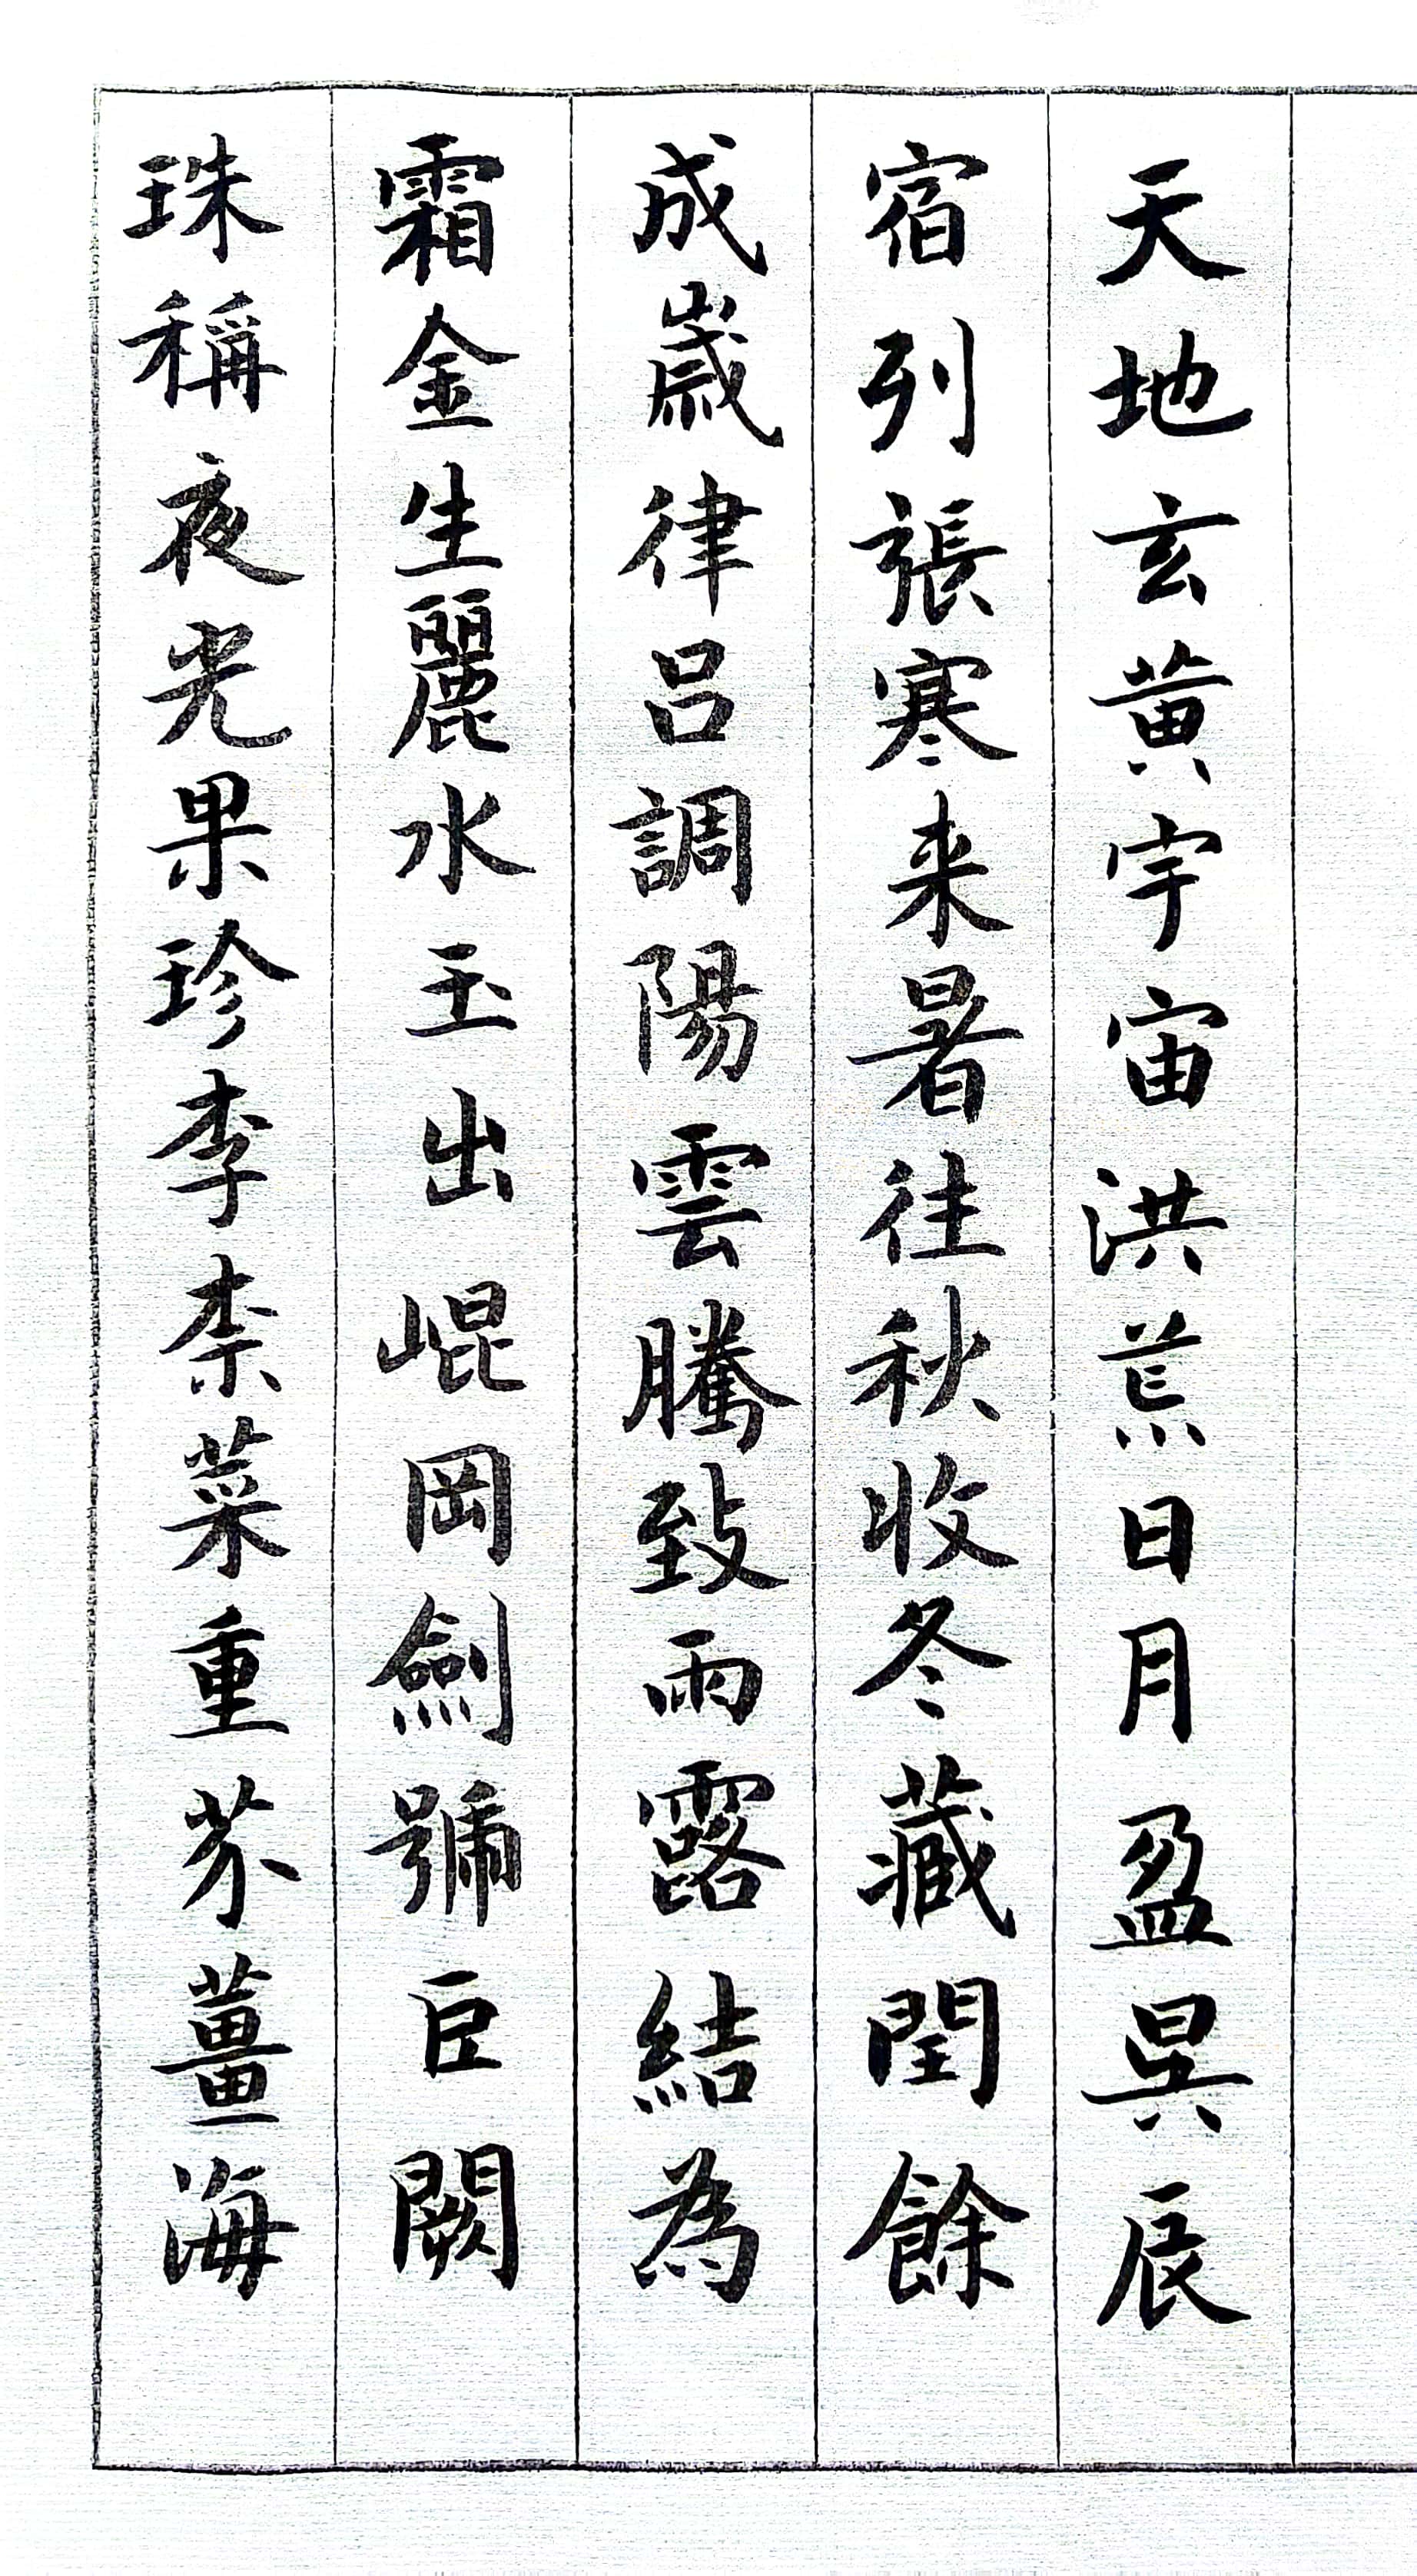 天地玄黄宇宙洪荒日月盈昃辰
宿列張寒来暑往秋收冬藏閏餘
成歲律呂調陽雲騰致雨露結為
霜金生麗水玉出崐岡劍號巨闕
珠稱夜光果珍李柰菜重芥薑海